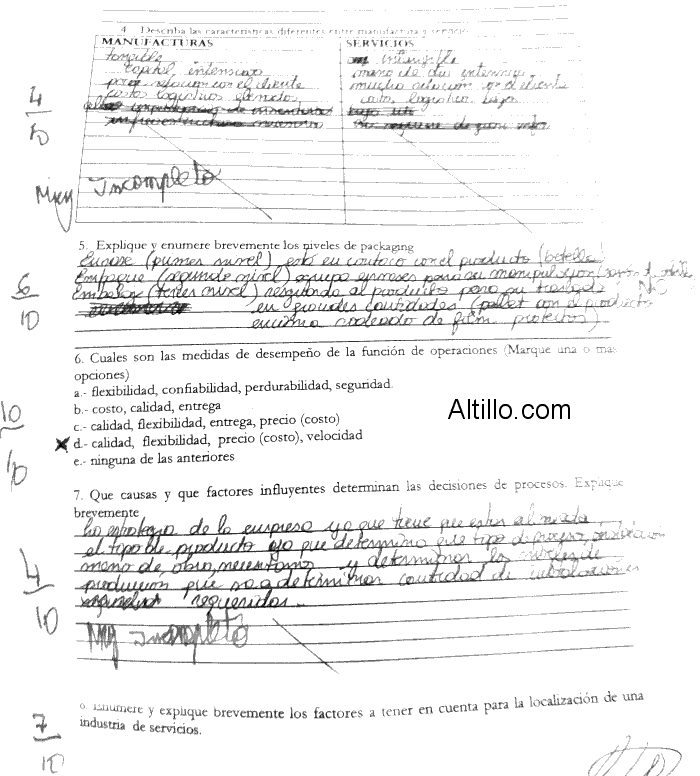 4. Describa las características diferentes entre manufactura y servicio
MANUFACTURAS
SERVICIOS
tangible
capital intensivo
poca relacion con el cliente
costos logisticos elevados
intangible
mano de obra intensiva
mucha relacion con el cliente
costo logistico bajo
4
10
Muy Incompleto
5. Explique y enumere brevemente los niveles de packaging
Envase (primer nivel) está en contacto con el producto (botella)
Empaque (segundo nivel) agrupa envases para su manipulacion
Embalaje (tercer nivel) resguarda al producto para su traslado NO
en grandes cantidades (pallet con el producto
encima rodeado de film protector)
6
10
6. Cuales son las medidas de desempeño de la función de operaciones (Marque una o mas
opciones)
a.- flexibilidad, confiabilidad, perdurabilidad, seguridad.
b.- costo, calidad, entrega
c.- calidad, flexibilidad, entrega, precio (costo)
X d.- calidad, flexibilidad, precio (costo), velocidad
e.- ninguna de las anteriores
10
10
Altillo.com
7. Que causas y que factores influyentes determinan las decisiones de procesos. Explique
brevemente
La estrategia de la empresa ya que tiene que estar
el tipo de producto ya que determina que tipo de proceso,
mano de obra, necesitamos y determinar los niveles de
produccion que va a determinar cantidad de instalaciones
requeridas.
4
10
Muy Incompleto
8. Enumere y explique brevemente los factores a tener en cuenta para la localización de una
industria de servicios.
7
10